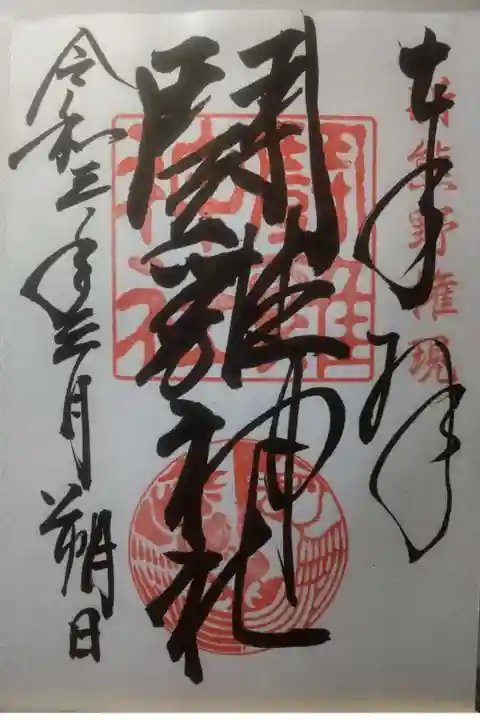 奉拝
新熊野権現
闘雞神社
闘雞神社
令和三年三月朔日